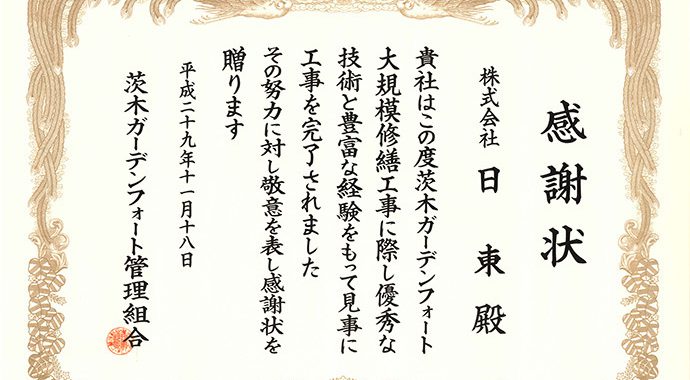 感謝状
株式会社 日東殿
貴社はこの度茨木ガーデンフォート
大規模修繕工事に際し優秀な
技術と豊富な経験をもって見事に
工事を完了されました
その努力に対し敬意を表し感謝状を
贈ります
平成二十九年十一月十八日
茨木ガーデンフォート管理組合